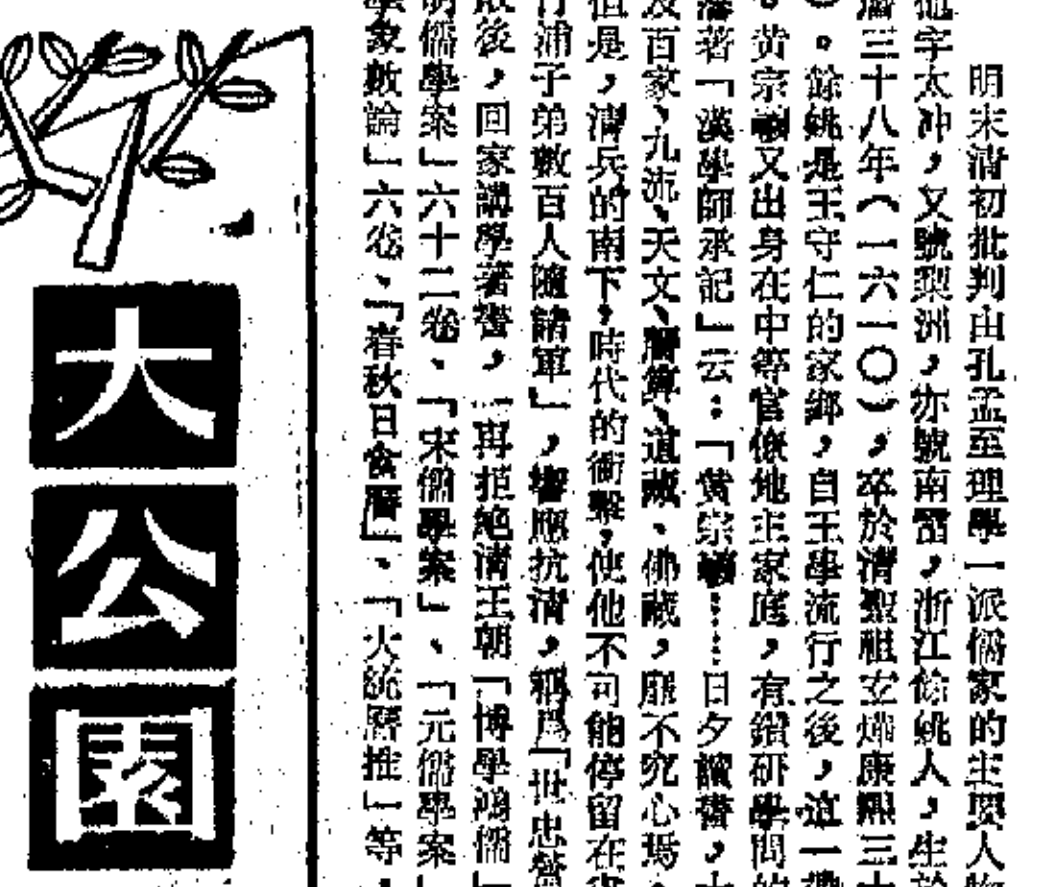 明末清初批判由孔孟至理學一派儒家的主要人物
他字太冲，又號梨洲，亦號南雷，浙江餘姚人，生於
曆三十八年（一六一〇），卒於清聖祖玄燁康熙三十
。餘姚是王守仁的家鄉，自王學流行之後，這一帶
。黃宗羲又出身在中等官僚地主家庭，有鑽研學問的
藩著「漢學師承記」云：「黃宗羲……日夕讀書，十
及百家、九流、天文、曆算、道藏、佛藏，靡不究心焉。
但是，清兵的南下，時代的衝擊，使他不可能停留在書
竹浦子弟數百人隨諸軍」，響應抗清，稱爲「世忠營
敗後，回家講學著書，一再拒絶清王朝「博學鴻儒」
明儒學案」六十二卷、「宋儒學案」、「元儒學案」
學象數論」六卷、「春秋日食曆」、「大統曆推」等，
大公園